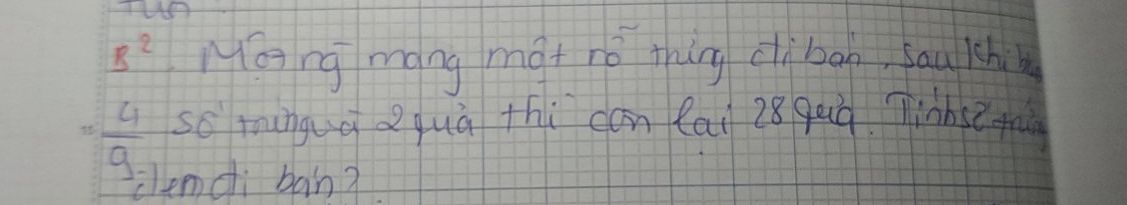 B². Một ng mang một rổ trứng đi bán, sau khi bán
4/9 số trứng và 2 quả thì còn lại 28 quả. Tính số trứng
đem đi bán?